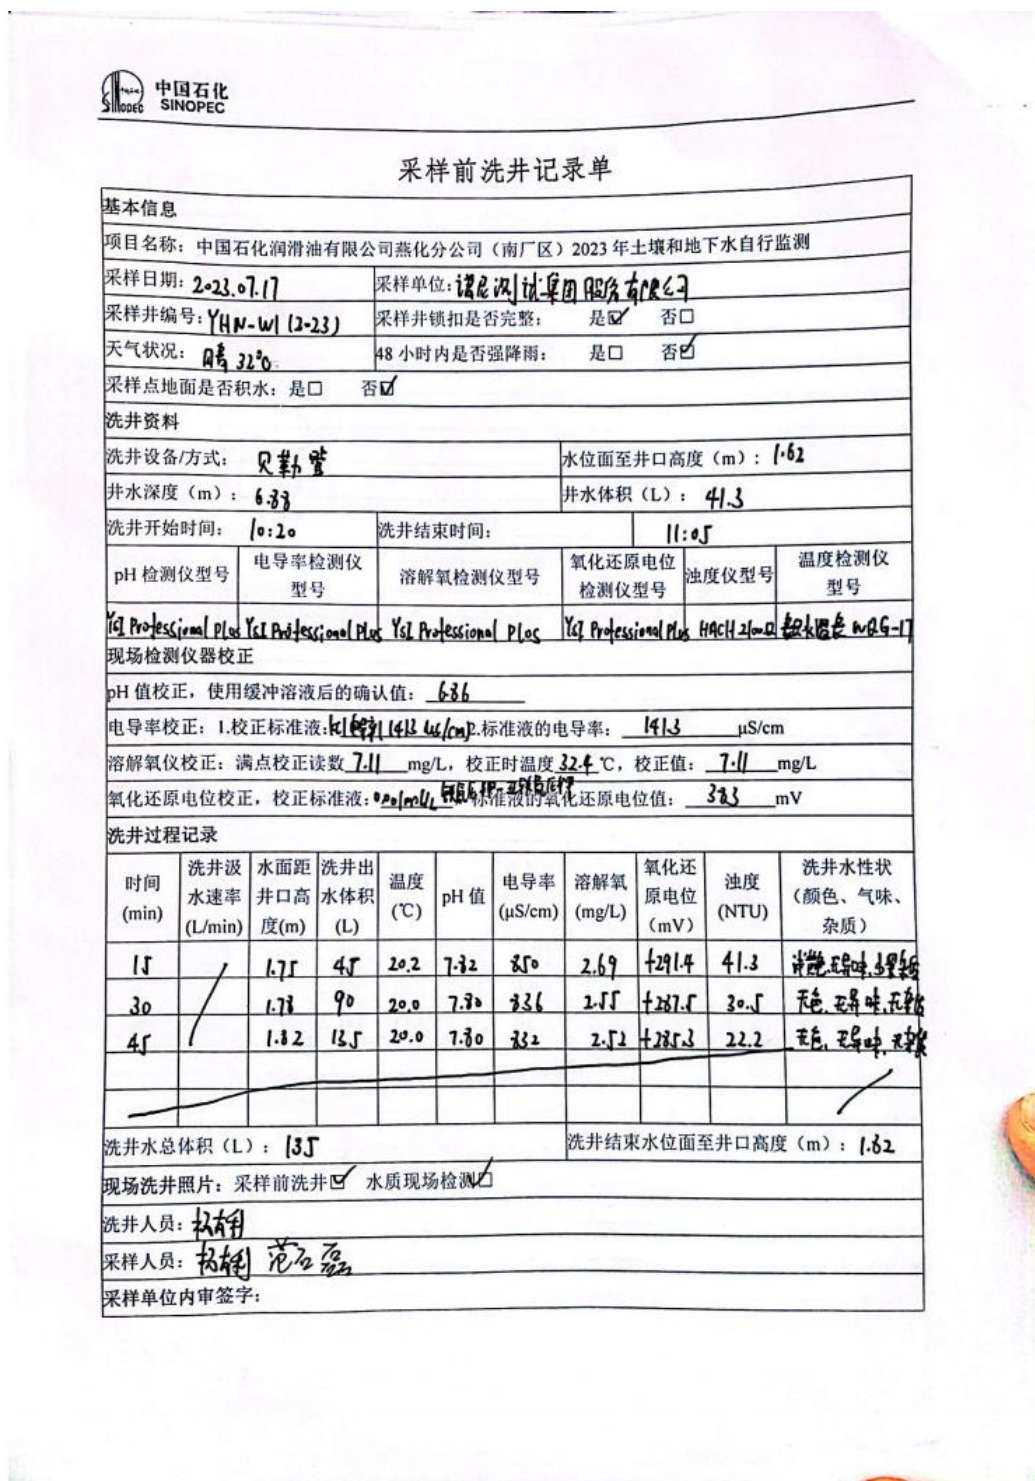 中国石化
SINOPEC
采样前洗井记录单
基本信息
项目名称：中国石化润滑油有限公司燕化分公司（南厂区）2023年土壤和地下水自行监测
采样日期：2023.07.17 采样单位：诺尼测试集团股份有限公司
采样井编号：YHN-W1(2-23) 采样井锁扣是否完整： 是☑ 否□
天气状况： 晴 32℃ 48小时内是否强降雨： 是□ 否☑
采样点地面是否积水：是□ 否☑
洗井资料
洗井设备/方式： 贝勒管 水位面至井口高度（m）：1.62
井水深度（m）：6.88 井水体积（L）：41.3
洗井开始时间： 10:20 洗井结束时间： 11:05
pH检测仪型号 电导率检测仪型号 溶解氧检测仪型号 氧化还原电位检测仪型号 浊度仪型号 温度检测仪型号
YSI Professional Plus YSI Professional Plus YSI Professional Plus YSI Professional Plus HACH 2100Q WQG-17
现场检测仪器校正
pH值校正，使用缓冲溶液后的确认值： 6.86
电导率校正：1.校正标准液： 1413 us/cm 2.标准液的电导率： 1413 μS/cm
溶解氧仪校正：满点校正读数 7.11 mg/L，校正时温度 32.4 ℃，校正值： 7.11 mg/L
氧化还原电位校正，校正标准液： 标准液的氧化还原电位值： 383 mV
洗井过程记录
时间(min) 洗井汲水速率(L/min) 水面距井口高度(m) 洗井出水体积(L) 温度(℃) pH值 电导率(μS/cm) 溶解氧(mg/L) 氧化还原电位(mV) 浊度(NTU) 洗井水性状（颜色、气味、杂质）
15 / 1.75 45 20.2 7.82 850 2.69 +291.4 41.3 无异味
30 1.78 90 20.0 7.80 836 2.55 +287.5 30.5 无色、无异味、无杂质
45 1.82 135 20.0 7.80 832 2.52 +285.3 22.2 无色、无异味、无杂质
洗井水总体积（L）：135 洗井结束水位面至井口高度（m）：1.62
现场洗井照片：采样前洗井☑ 水质现场检测☑
洗井人员：
采样人员： 范石磊
采样单位内审签字：